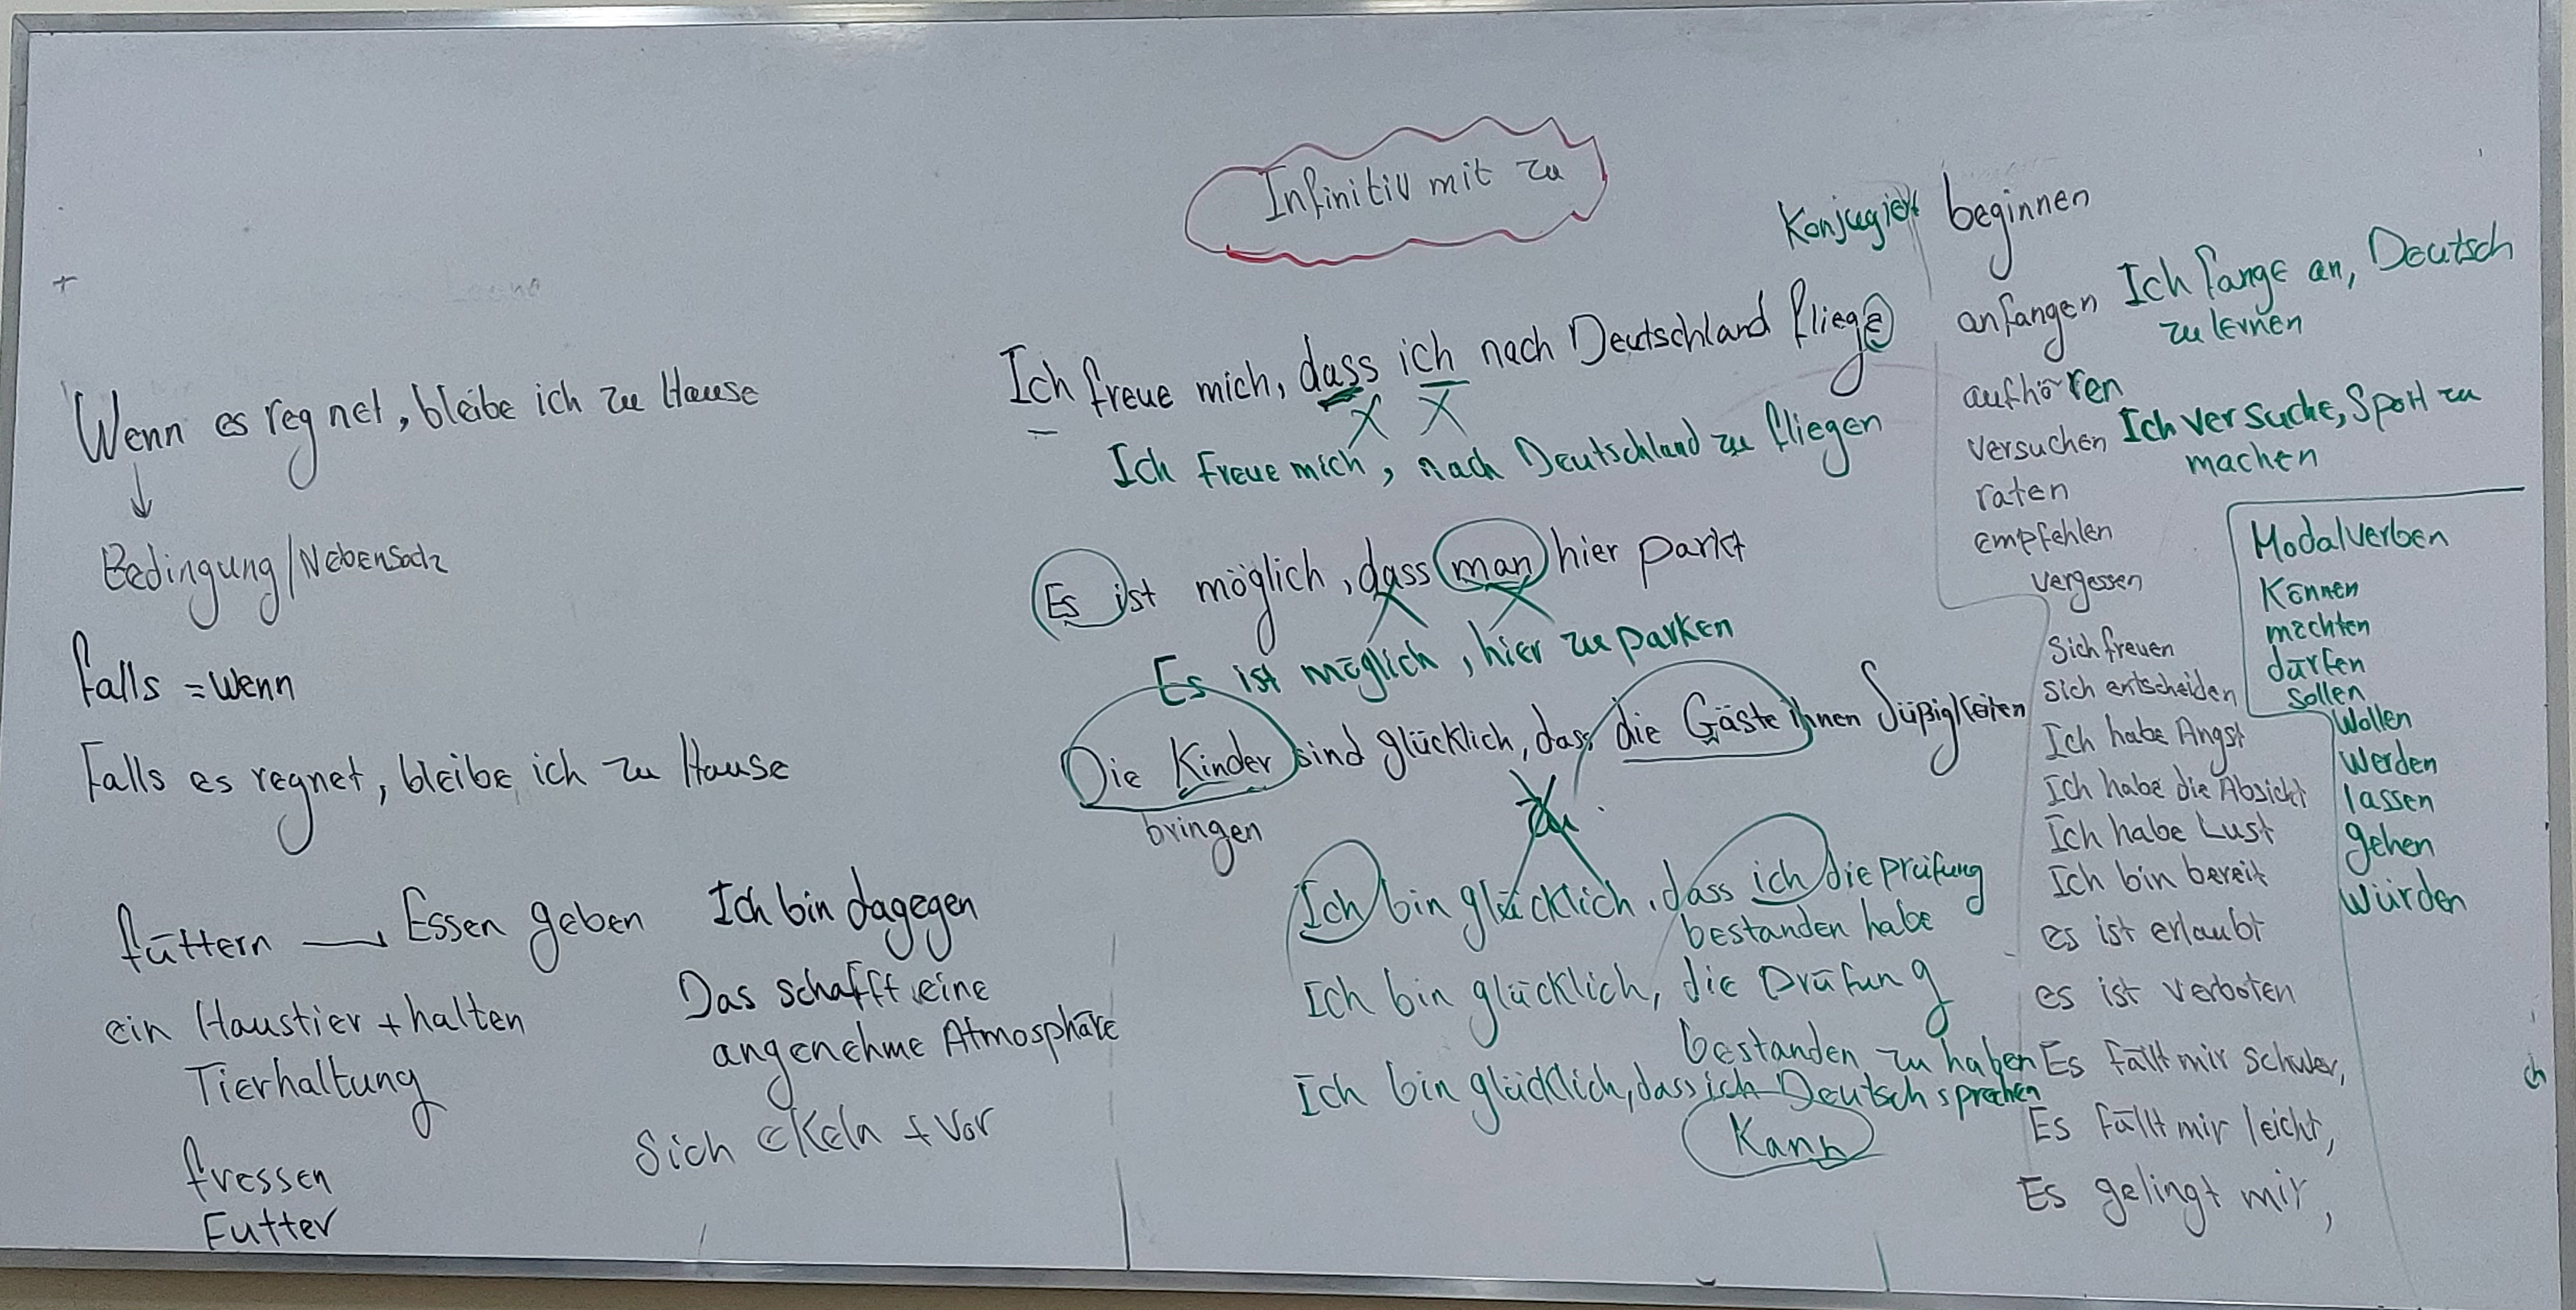 Infinitiv mit zu
Wenn es regnet, bleibe ich zu Hause
Bedingung/Nebensatz
falls = wenn
Falls es regnet, bleibe ich zu Hause
füttern → Essen geben
ein Haustier + halten
Tierhaltung
fressen
Futter
Ich bin dagegen
Das schafft eine
angenehme Atmosphäre
Sich ekeln + vor
Konjugiert
Ich freue mich, dass ich nach Deutschland fliege
X X
Ich freue mich, nach Deutschland zu fliegen
Es ist möglich, dass man hier parkt
Es ist möglich, hier zu parken
Die Kinder sind glücklich, dass die Gäste ihnen Süßigkeiten
bringen
zu
Ich bin glücklich, dass ich die Prüfung
bestanden habe
Ich bin glücklich, die Prüfung
bestanden zu haben
Ich bin glücklich, dass ich Deutsch sprechen
Kann
beginnen
anfangen Ich fange an, Deutsch
zu lernen
aufhören
versuchen Ich versuche, Sport zu
machen
raten
empfehlen
vergessen
Sich freuen
sich entscheiden
Ich habe Angst
Ich habe die Absicht
Ich habe Lust
Ich bin bereit
es ist erlaubt
es ist verboten
Es fällt mir schwer,
Es fällt mir leicht,
Es gelingt mir,
Modalverben
Können
möchten
dürfen
sollen
Wollen
Werden
lassen
gehen
würden
ch